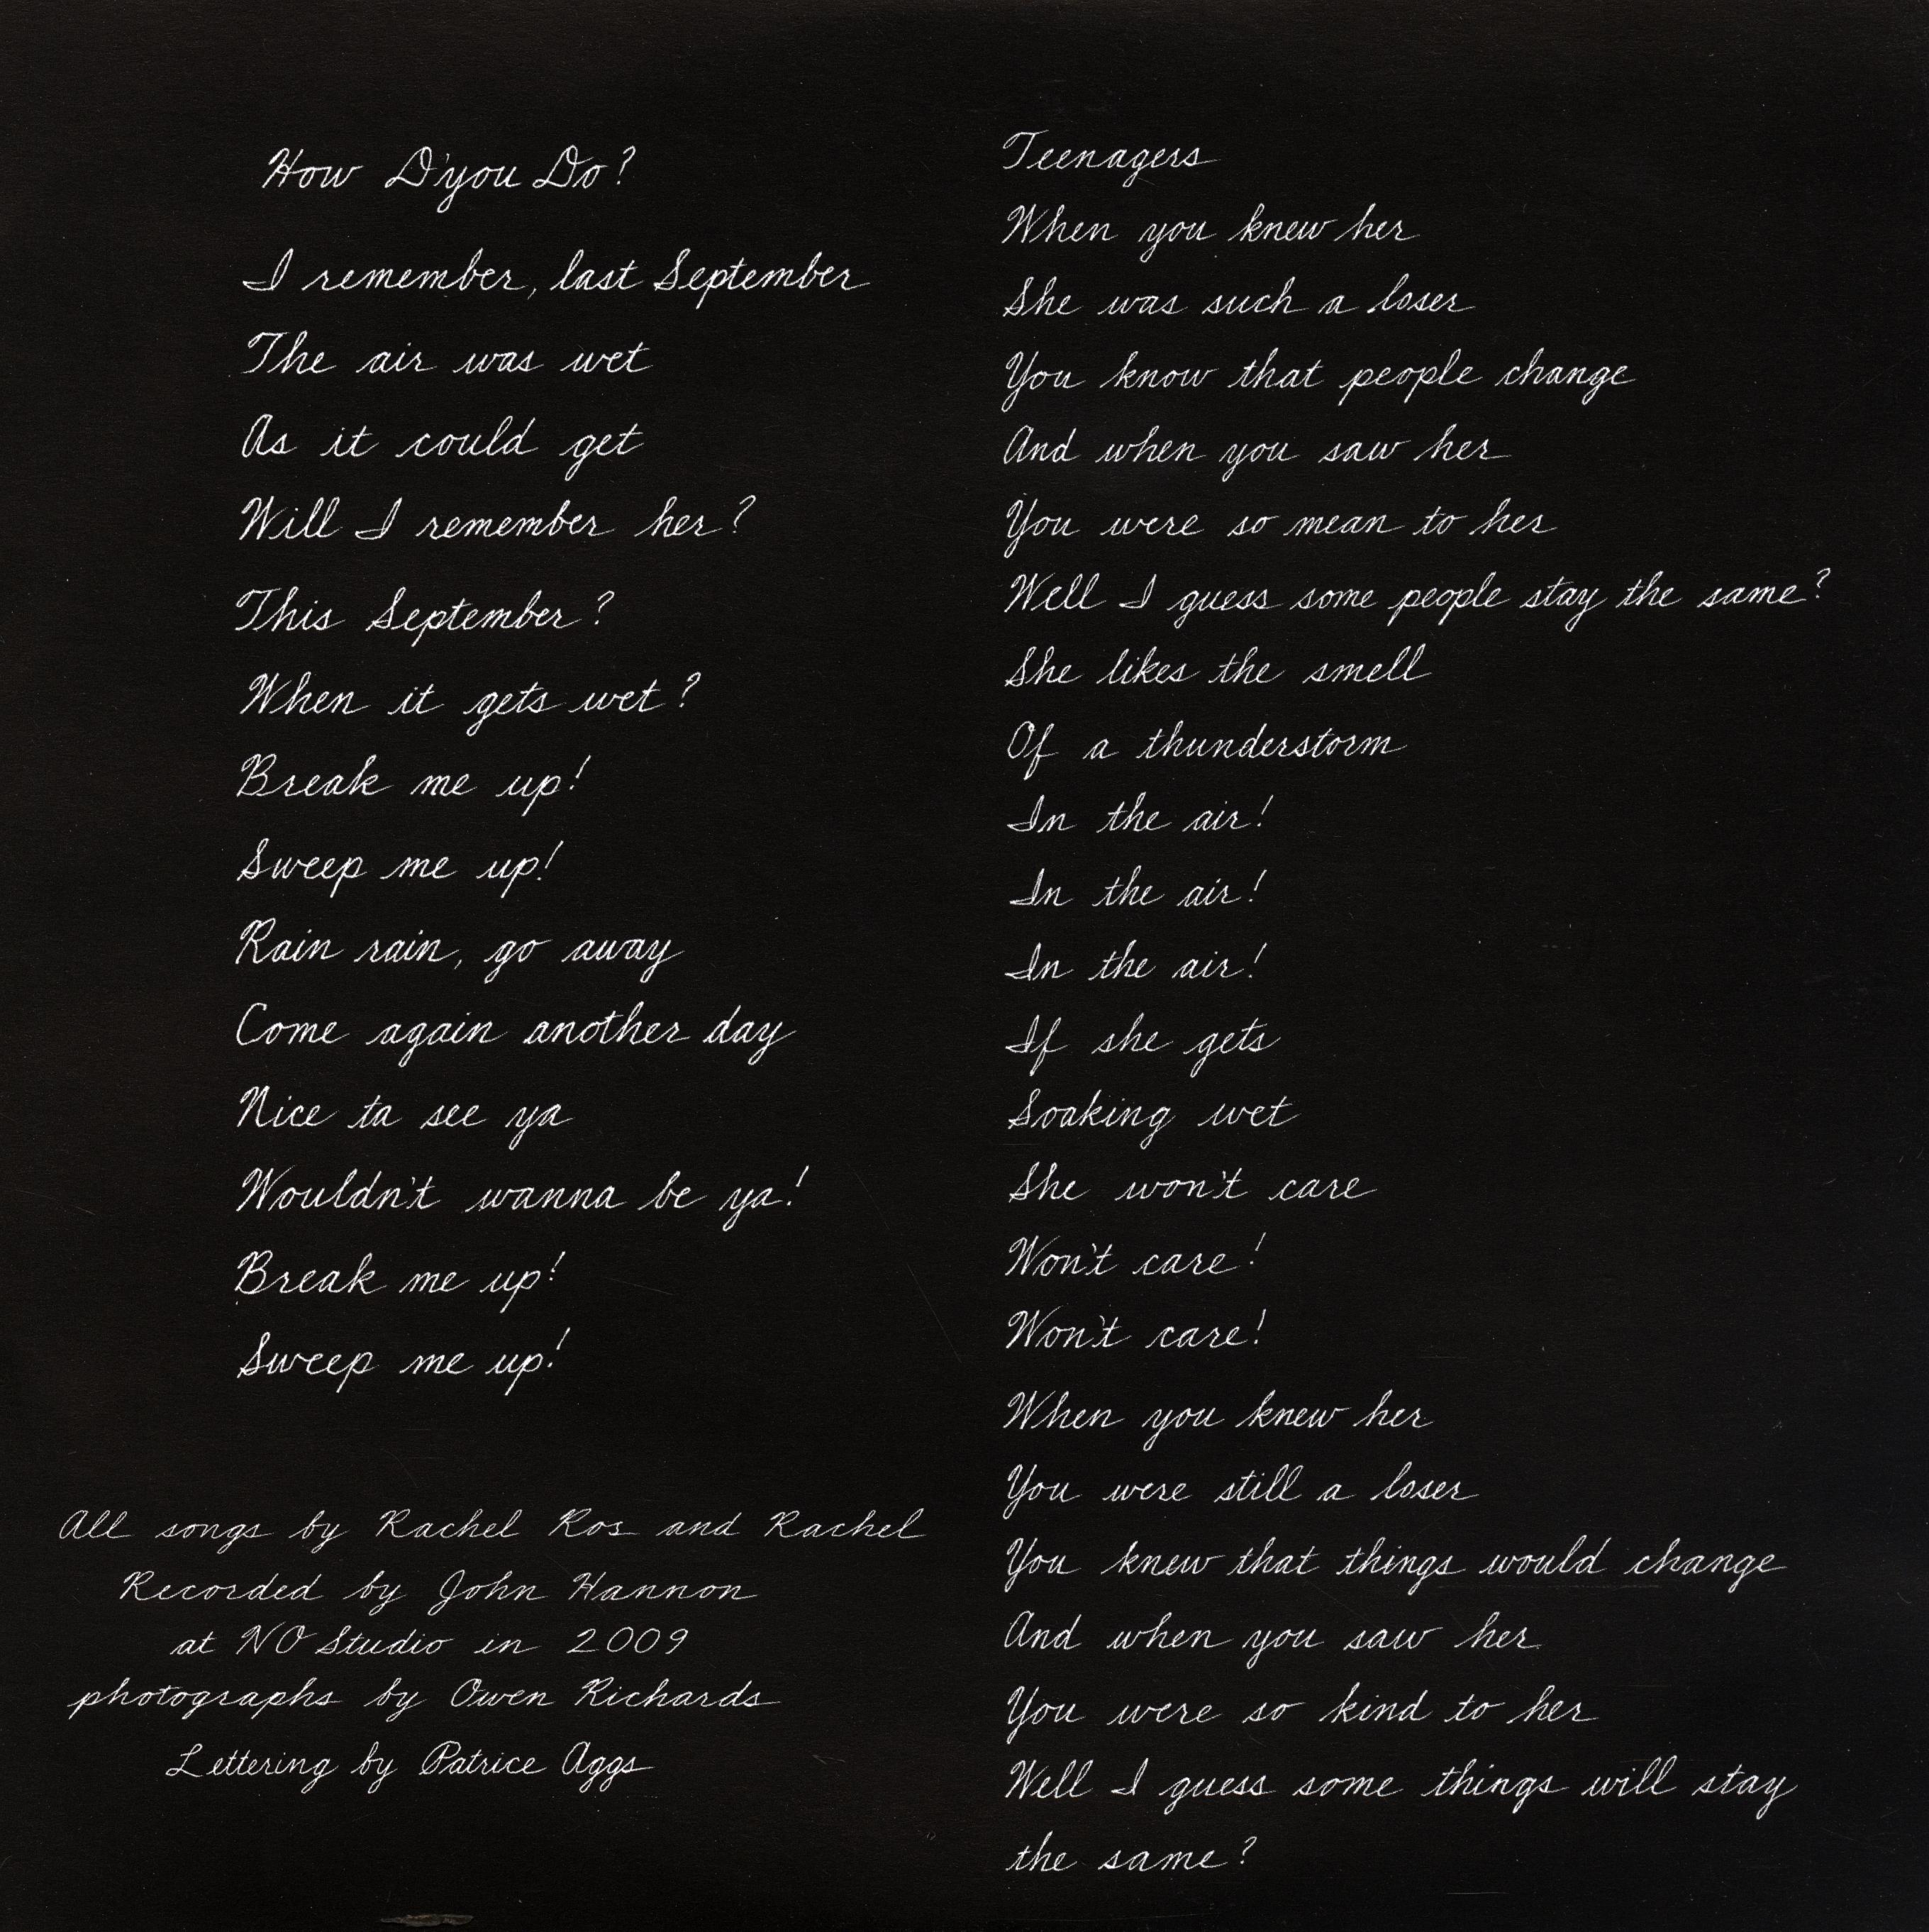 How D'you Do?
I remember, last September
The air was wet
As it could get
Will I remember her?
This September?
When it gets wet?
Break me up!
Sweep me up!
Rain rain, go away
Come again another day
Nice ta see ya
Wouldn't wanna be ya!
Break me up!
Sweep me up!
All songs by Rachel Ros and Rachel
Recorded by John Hannon
at NO Studio in 2009
photographs by Owen Richards
Lettering by Patrice Aggs
Teenagers
When you knew her
She was such a loser
You know that people change
And when you saw her
You were so mean to her
Well I guess some people stay the same?
She likes the smell
Of a thunderstorm
In the air!
In the air!
In the air!
If she gets
Soaking wet
She won't care
Won't care!
Won't care!
When you knew her
You were still a loser
You knew that things would change
And when you saw her
You were so kind to her
Well I guess some things will stay
the same?